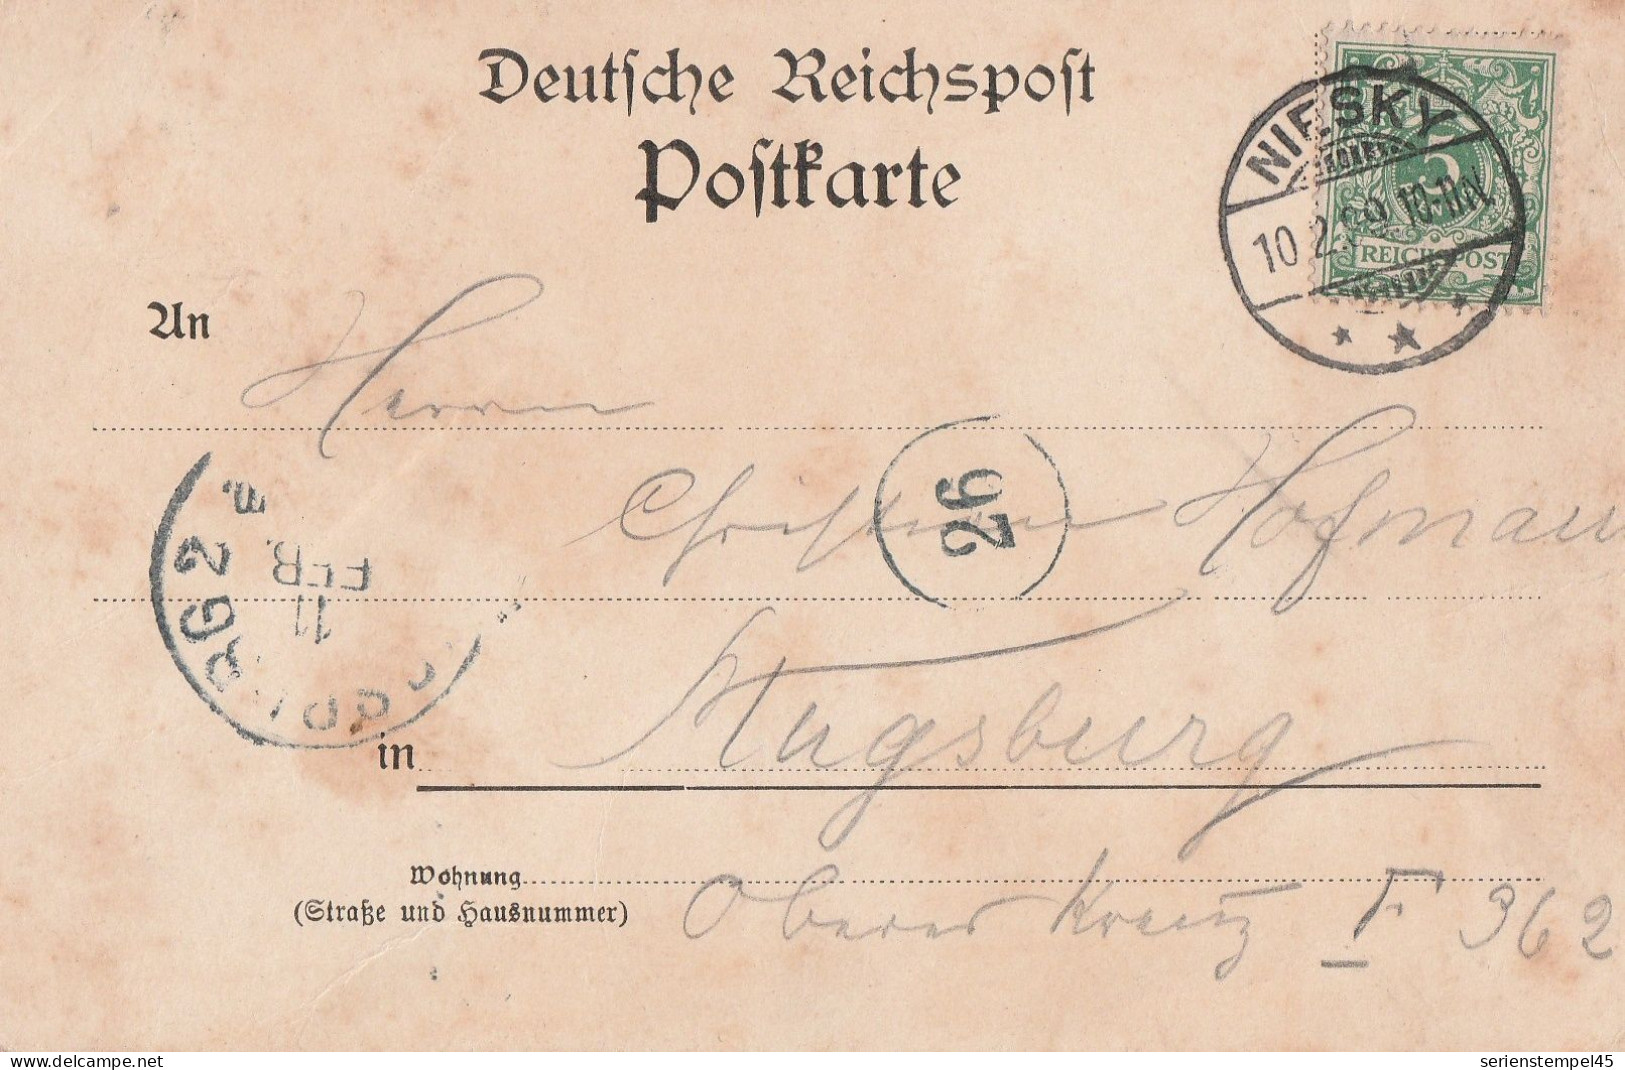 Deutsche Reichspost
Postkarte
NIESKY
10 2.99. 10-11N.
5
REICHSPOST
An
Herrn
Christian Hofmann
26
11
FEB.
in Augsburg
Wohnung
(Straße und Hausnummer)
Oberes Kreuz F 362
serienstempel45